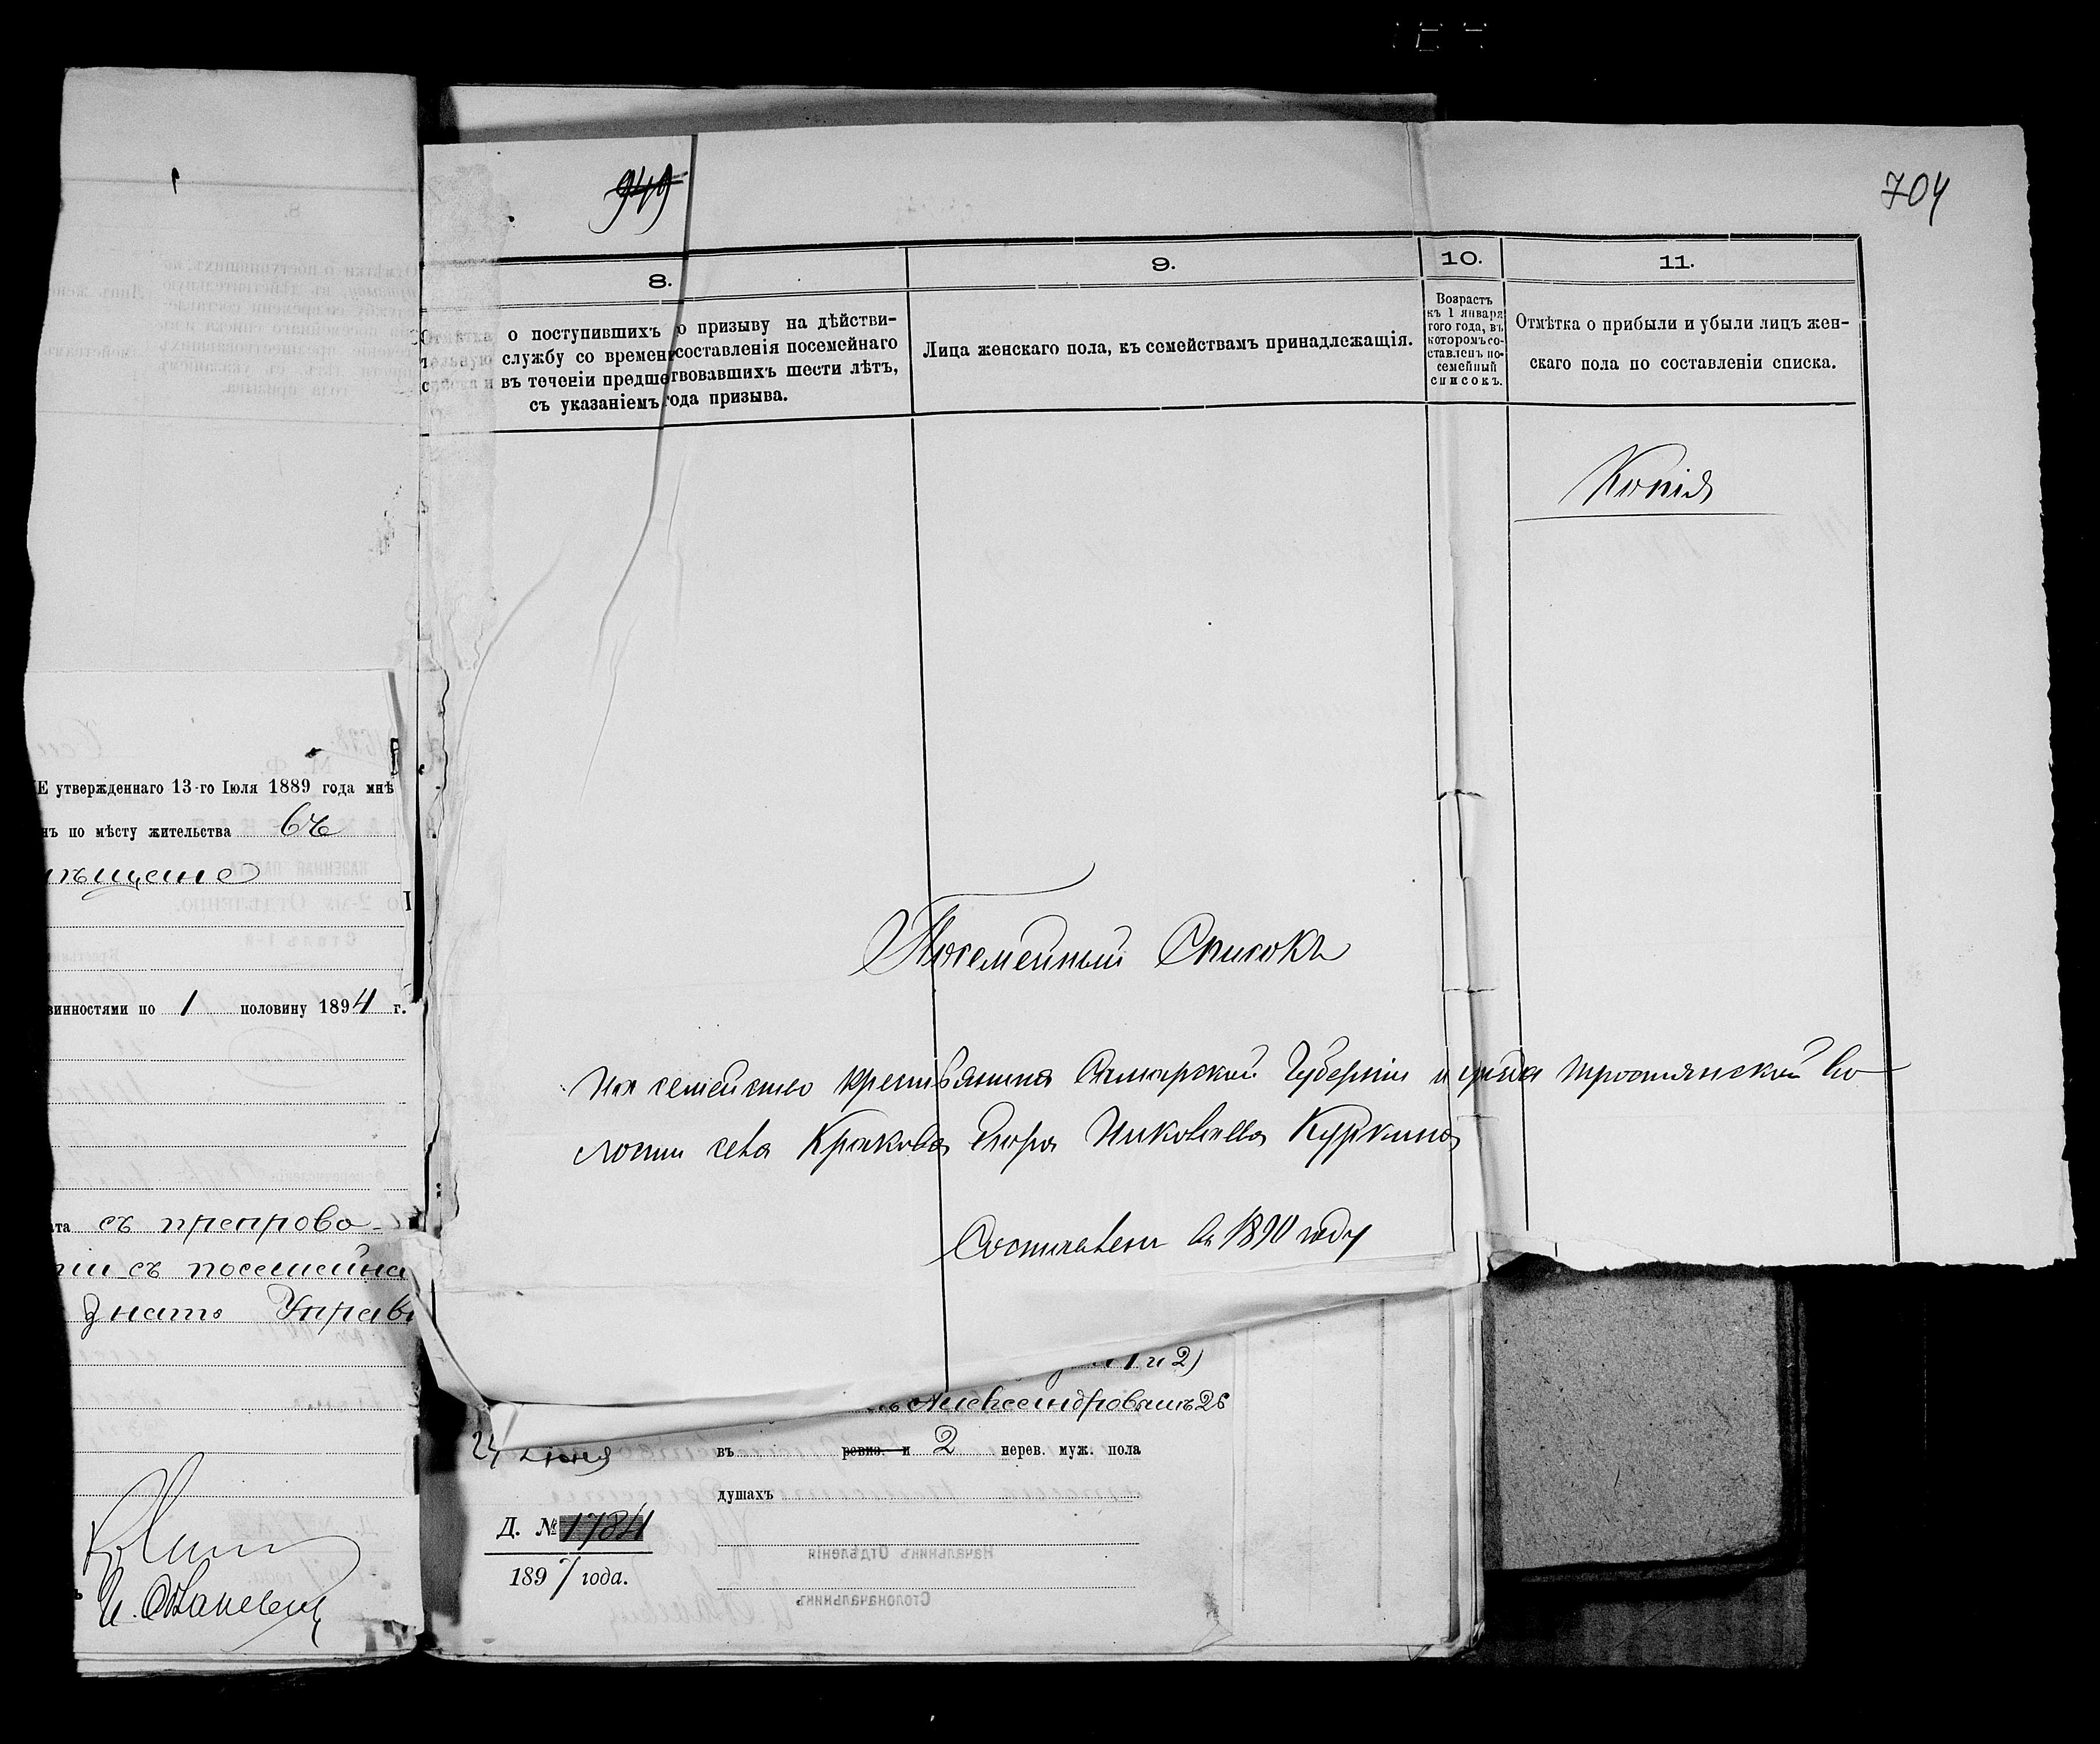 949
704
8.
9.
10.
11.
Отмѣтка о поступившихъ по призыву на дѣйстви-
тельную службу со времени составленія посемейнаго
списка и въ теченіи предшествовавшихъ шести лѣтъ,
съ указаніемъ года призыва.
Лица женскаго пола, къ семействамъ принадлежащія.
Возрастъ
къ 1 января
того года, въ
которомъ со-
ставленъ по-
семейный
списокъ.
Отмѣтка о прибыли и убыли лицъ жен-
скаго пола по составленіи списка.
Копія
Посемейный Списокъ
На семейство крестьянина Самарской Губерніи и уѣзда Тростянской Во
лости села Крякова Николаева Куркина
Составленъ въ 1890 году
утвержденнаго 13-го Іюля 1889 года мнѣ
нъ по мѣсту жительства
винностями по 1 половину 1894 г.
та съ препрово-
съ посемейна
знать Управ
1 и 2)
Александровымъ 26
въ ревиз. и 2 нерев. муж. пола
душахъ
Д. № 1784
1897 года.
Начальникъ Отдѣленія
Столоначальникъ